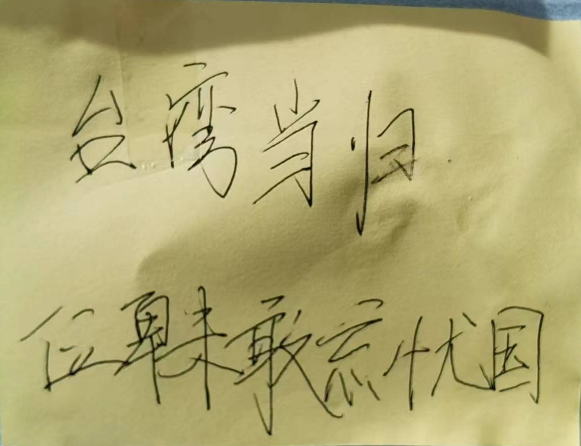 台湾当归
位卑未敢忘忧国